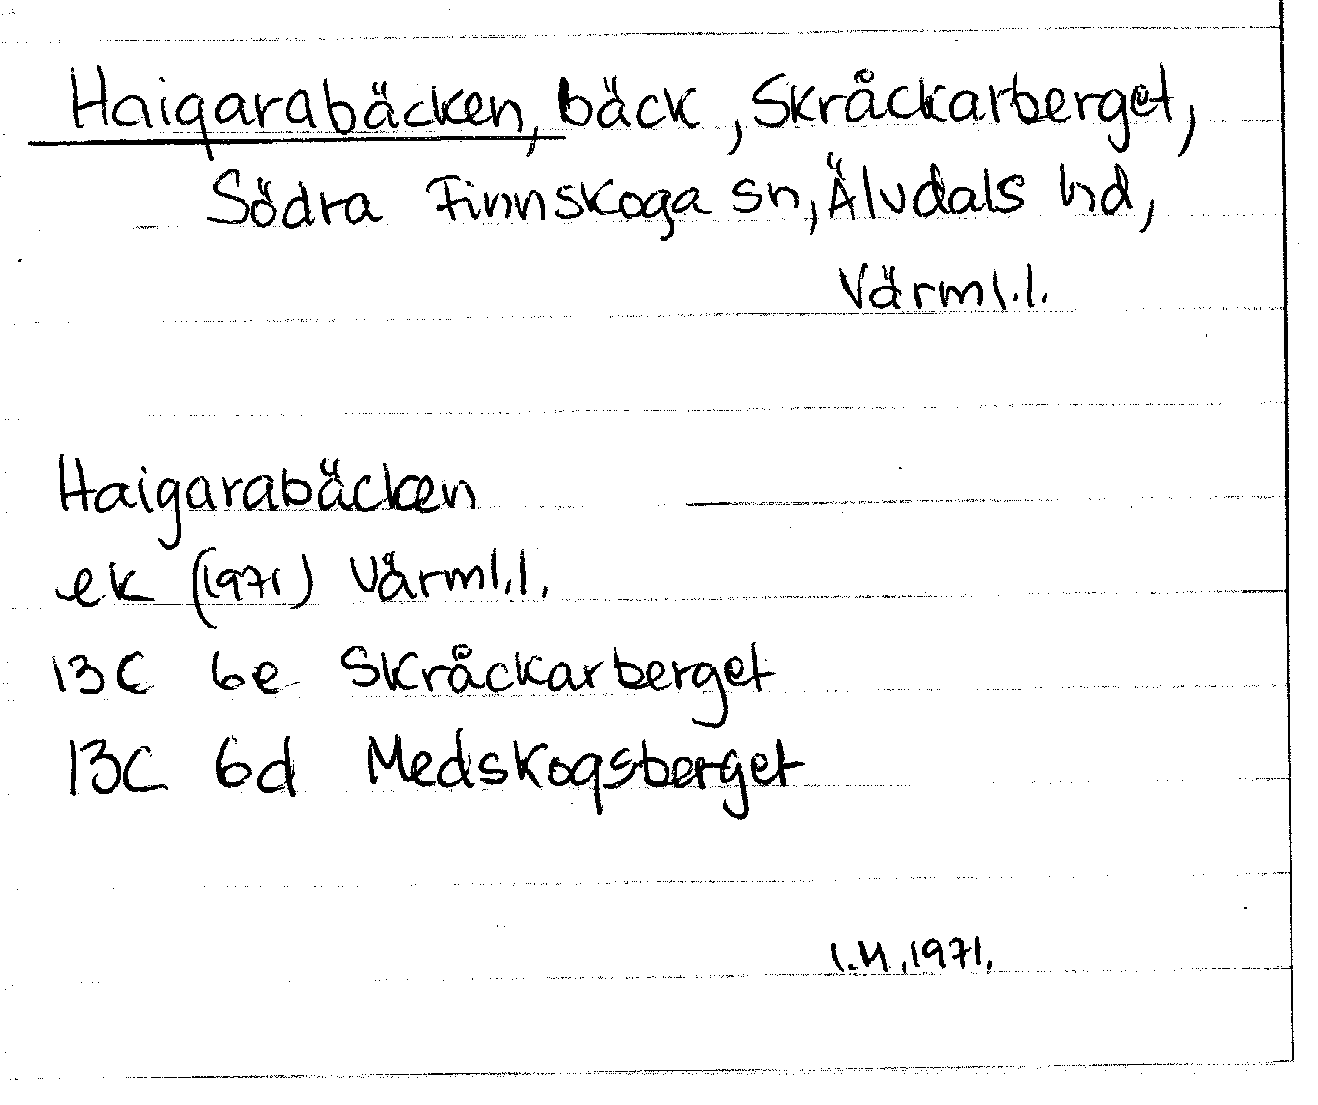 Haigarabäcken, bäck, Skråckarberget,
Södra Finnskoga sn, Älvdals hd,
Värml.l.
Haigarabäcken
ek (1971) Värml.l.
13C 6e Skråckarberget
13C 6d Medskogsberget
1971.